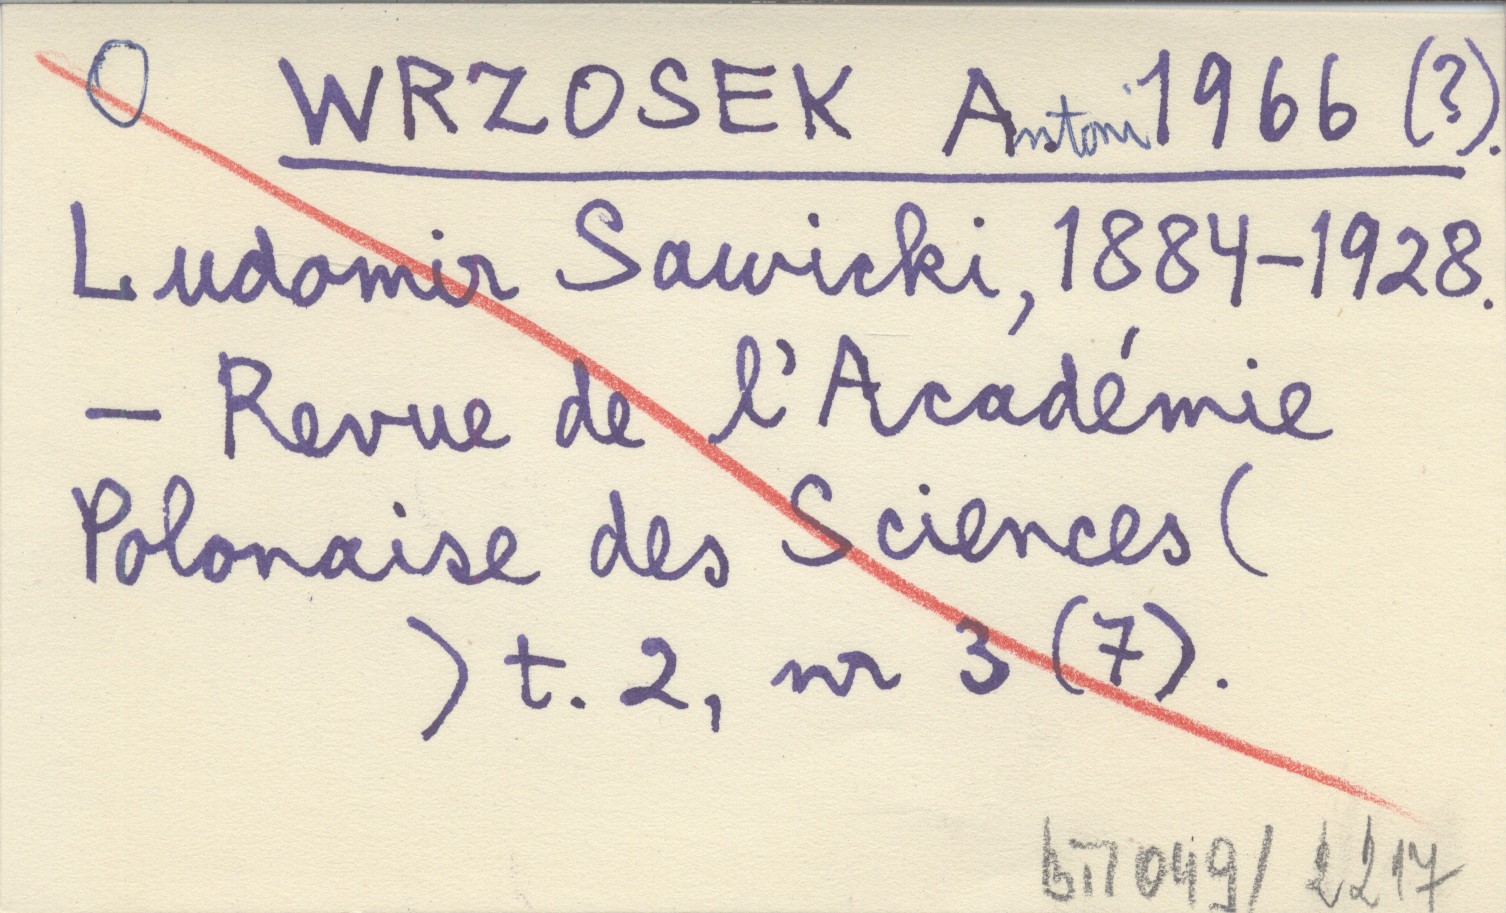 O WRZOSEK Antoni 1966 (?).
Ludomir Sawicki, 1884-1928.
— Revue de l'Académie
Polonaise des Sciences (
) t. 2, nr 3 (7).
049/2217